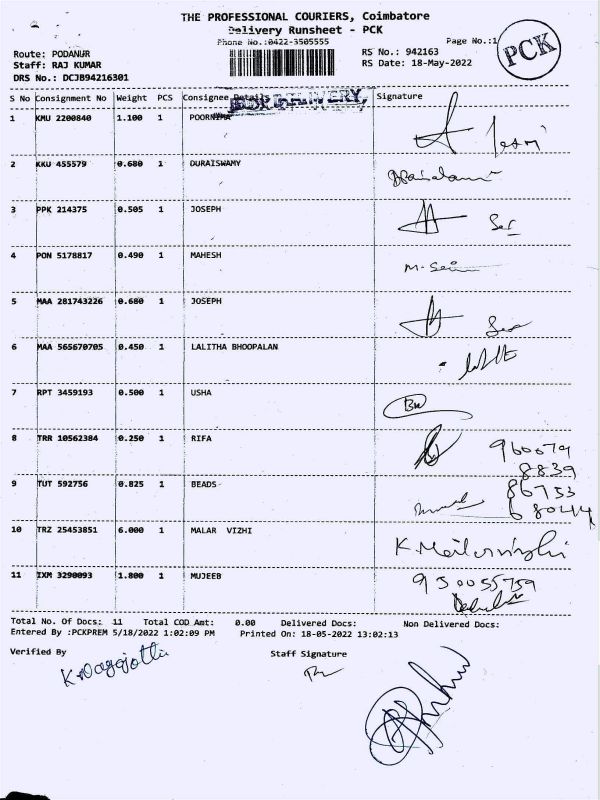 THE PROFESSIONAL COURIERS, Coimbatore
Delivery Runsheet - PCK
Phone No.:0422-3505555
Page No.:1
PCK
Route: PODANUR
RS No.: 942163
Staff: RAJ KUMAR
RS Date: 18-May-2022
DRS No.: DCJB94216301
S No Consignment No Weight PCS Consignee Details Signature
DELIVERY
1 KMU 2200840 1.100 1 POORNIMA
2 KKU 455579 0.680 1 DURAISWAMY
3 PPK 214375 0.505 1 JOSEPH
4 PON 5178817 0.490 1 MAHESH
5 MAA 281743226 0.680 1 JOSEPH
6 MAA 565670705 0.450 1 LALITHA BHOOPALAN
7 RPT 3459193 0.500 1 USHA
8 TRR 10562384 0.250 1 RIFA 960079
8839
9 TUT 592756 0.825 1 BEADS 86753
68044
10 TRZ 25453851 6.000 1 MALAR VIZHI
11 IXM 3290093 1.800 1 MUJEEB
Total No. Of Docs: 11 Total COD Amt: 0.00 Delivered Docs: Non Delivered Docs:
Entered By :PCKPREM 5/18/2022 1:02:09 PM Printed On: 18-05-2022 13:02:13
Verified By Staff Signature
K. Nagajothi